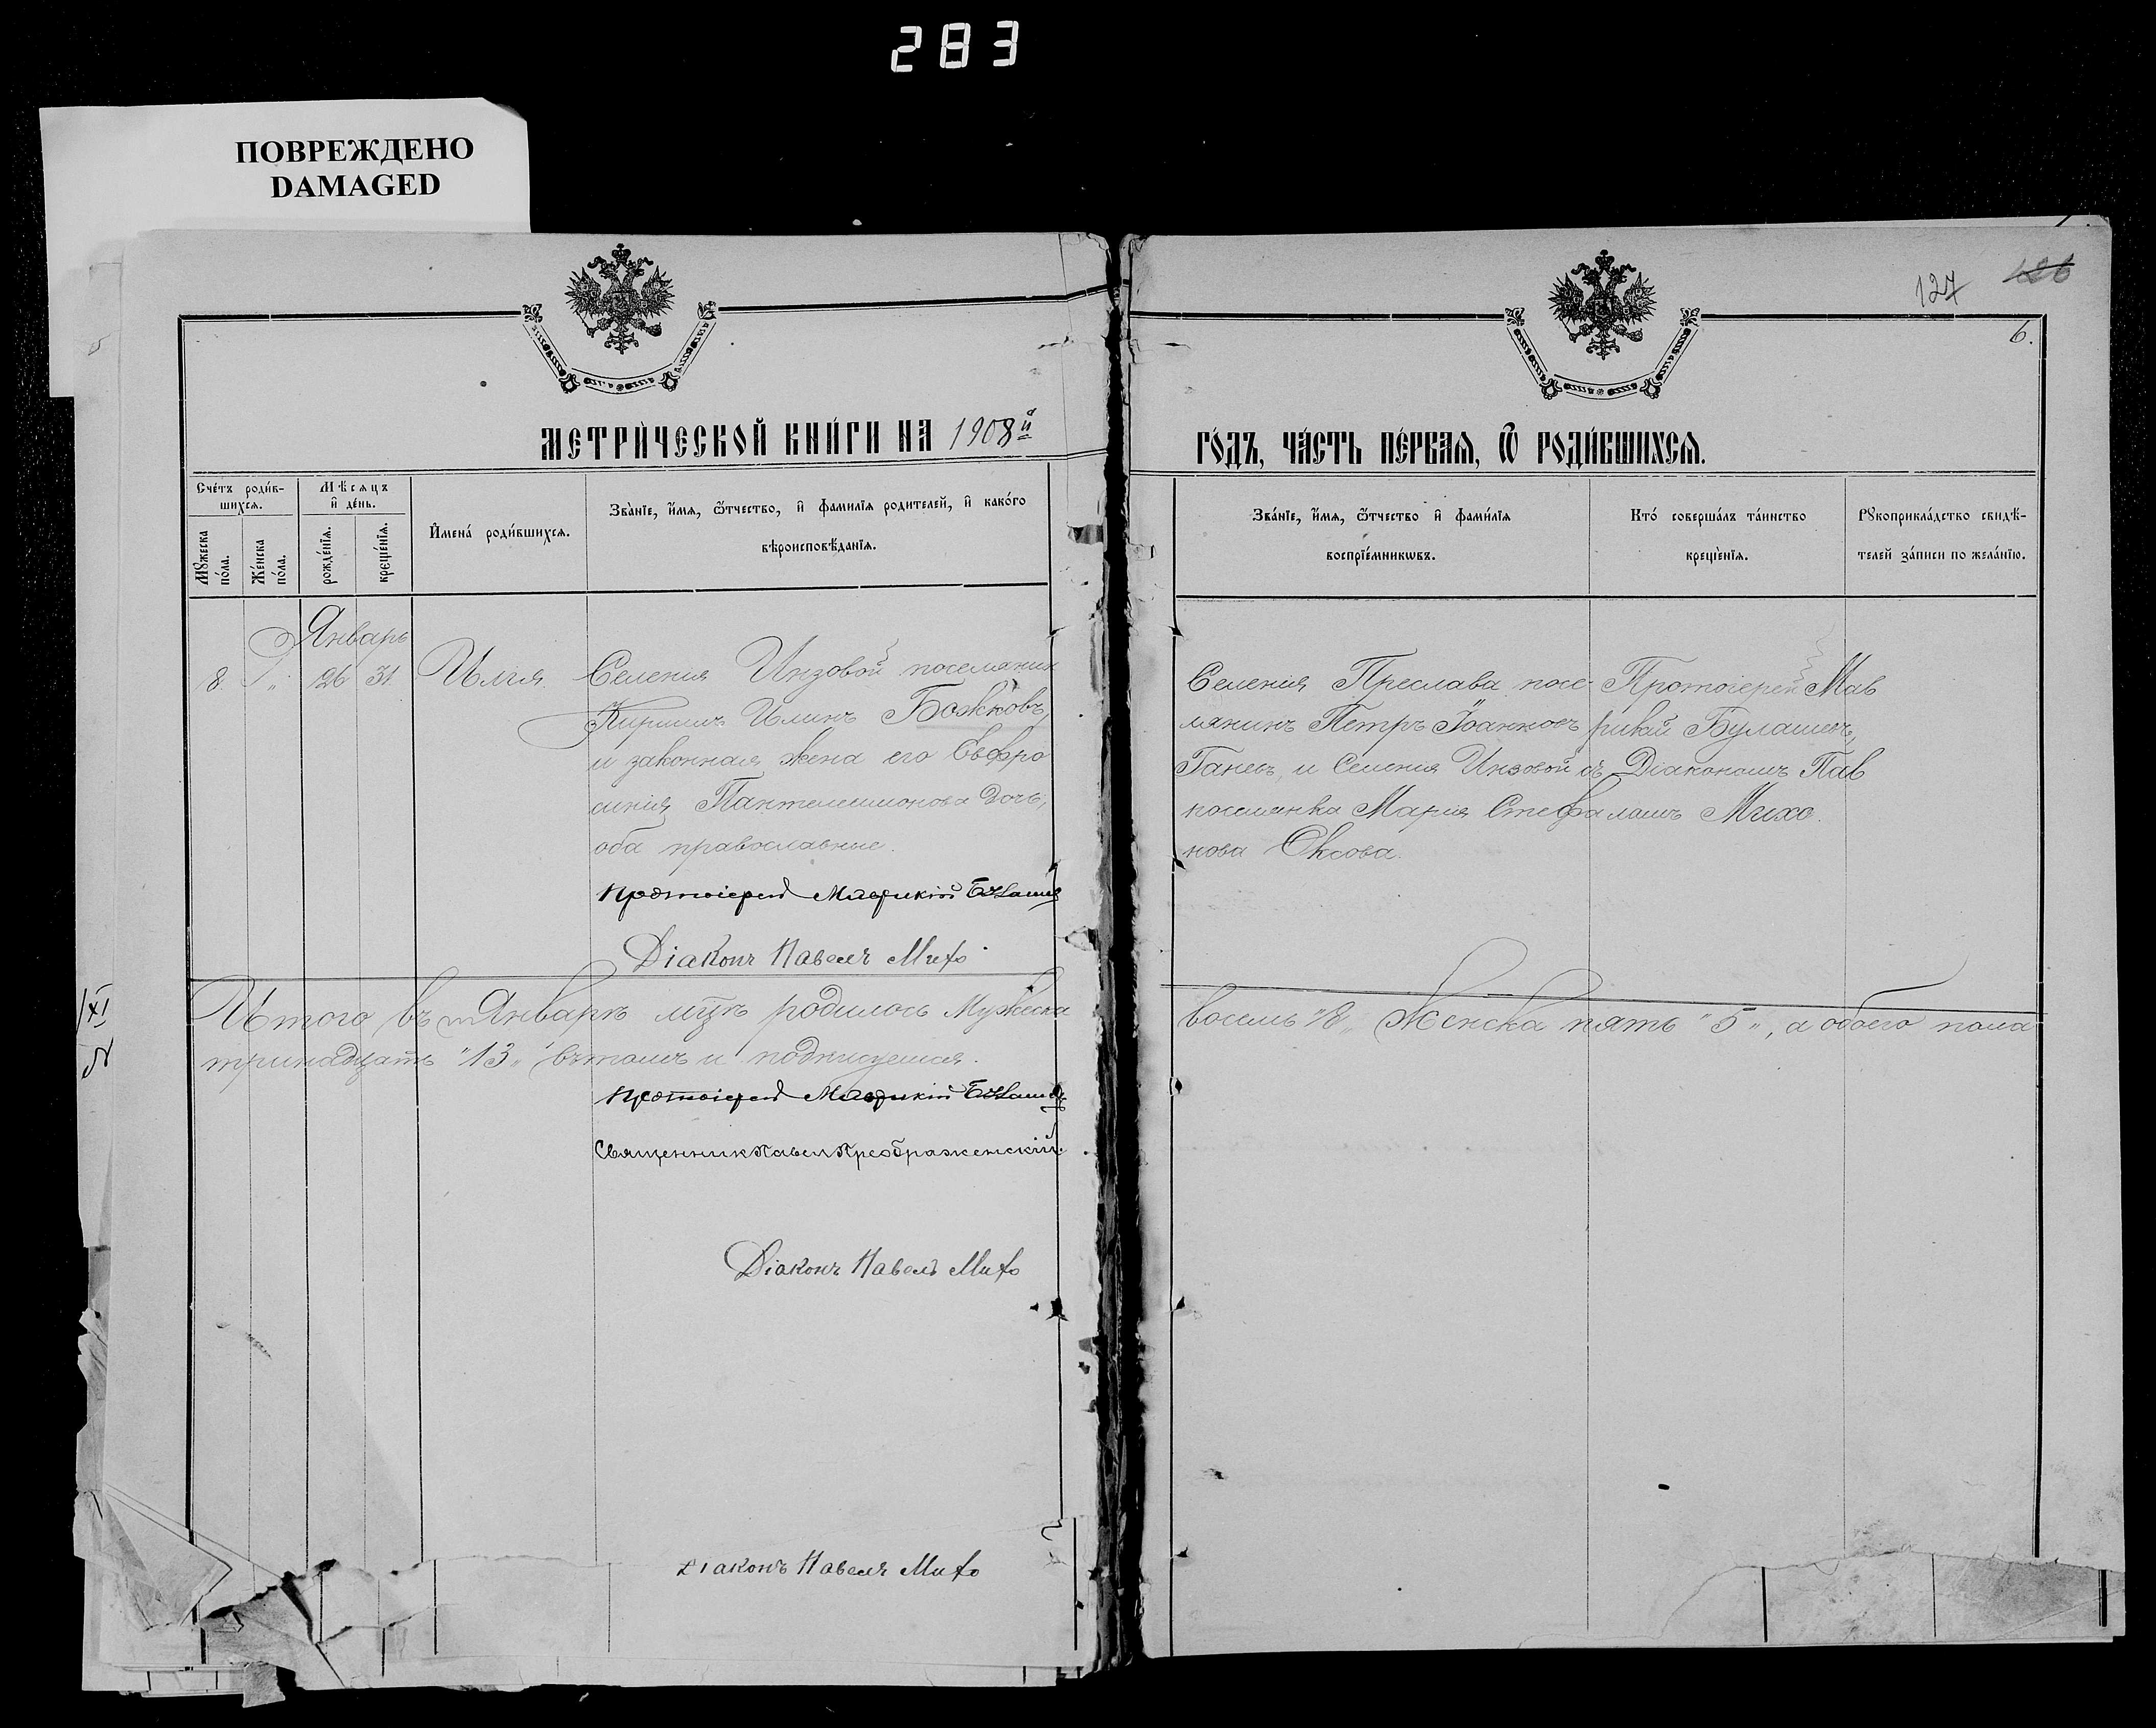 283
ПОВРЕЖДЕНО
DAMAGED
127
126
6.
МЕТРИ́ЧЕСКОЙ КНИ́ГИ НА 1908й
ГО́ДЪ, ЧА́СТЬ ПЕ́РВАѦ, Ѽ РОДИ́ВШИХСѦ.
Сче́тъ роди́в-
шихсѧ.
Мѣсѧцъ
и҆ де́нь.
Мꙋжеска
по́ла.
Же́нска
по́ла.
рожде́нїѧ.
креще́нїѧ.
И҆мена́ роди́вшихсѧ.
Зва́нїе, и҆́мѧ, ѻ҆́тчество, и҆ фамилїѧ родителей, и҆ како́го
вѣроисповѣ́данїѧ.
Зва́нїе, и҆́мѧ, ѻ҆́тчество и҆ фами́лїѧ
воспрїе́мникѡвъ.
Кто́ соверша́лъ та́инство
креще́нїѧ.
Рꙋкоприкла́дство свидѣ́-
телей за́писи по жела́нїю.
Январь
8. " 26 31. Илія
Селенія Инзовой поселянин
Кириллъ Илинъ Божковъ,
и законная жена его Евфро
синія Пантелеимонова дочь,
оба православные.
Протоіерей Маврикій Булашев
Діаконъ Павелъ Михо
Селенія Преслава посе-
лянинъ Петръ Іоанновъ
Ганевъ, и Селенія Инзовой
поселянка Марія Стефа
нова Оксова.
Протоіерей Мав
рикій Булашевъ,
съ Діакономъ Пав
ломъ Михо.
Итого въ Январѣ мцѣ родилось Мужеска
восемь "8", Женска пять "5", а обоего пола
тринадцать "13" въ томъ и подписуемся.
Протоіерей Маврикій Булашевъ
Священник Павел Преображенскій.
Діаконъ Павелъ Михо
Діаконъ Павелъ Михо